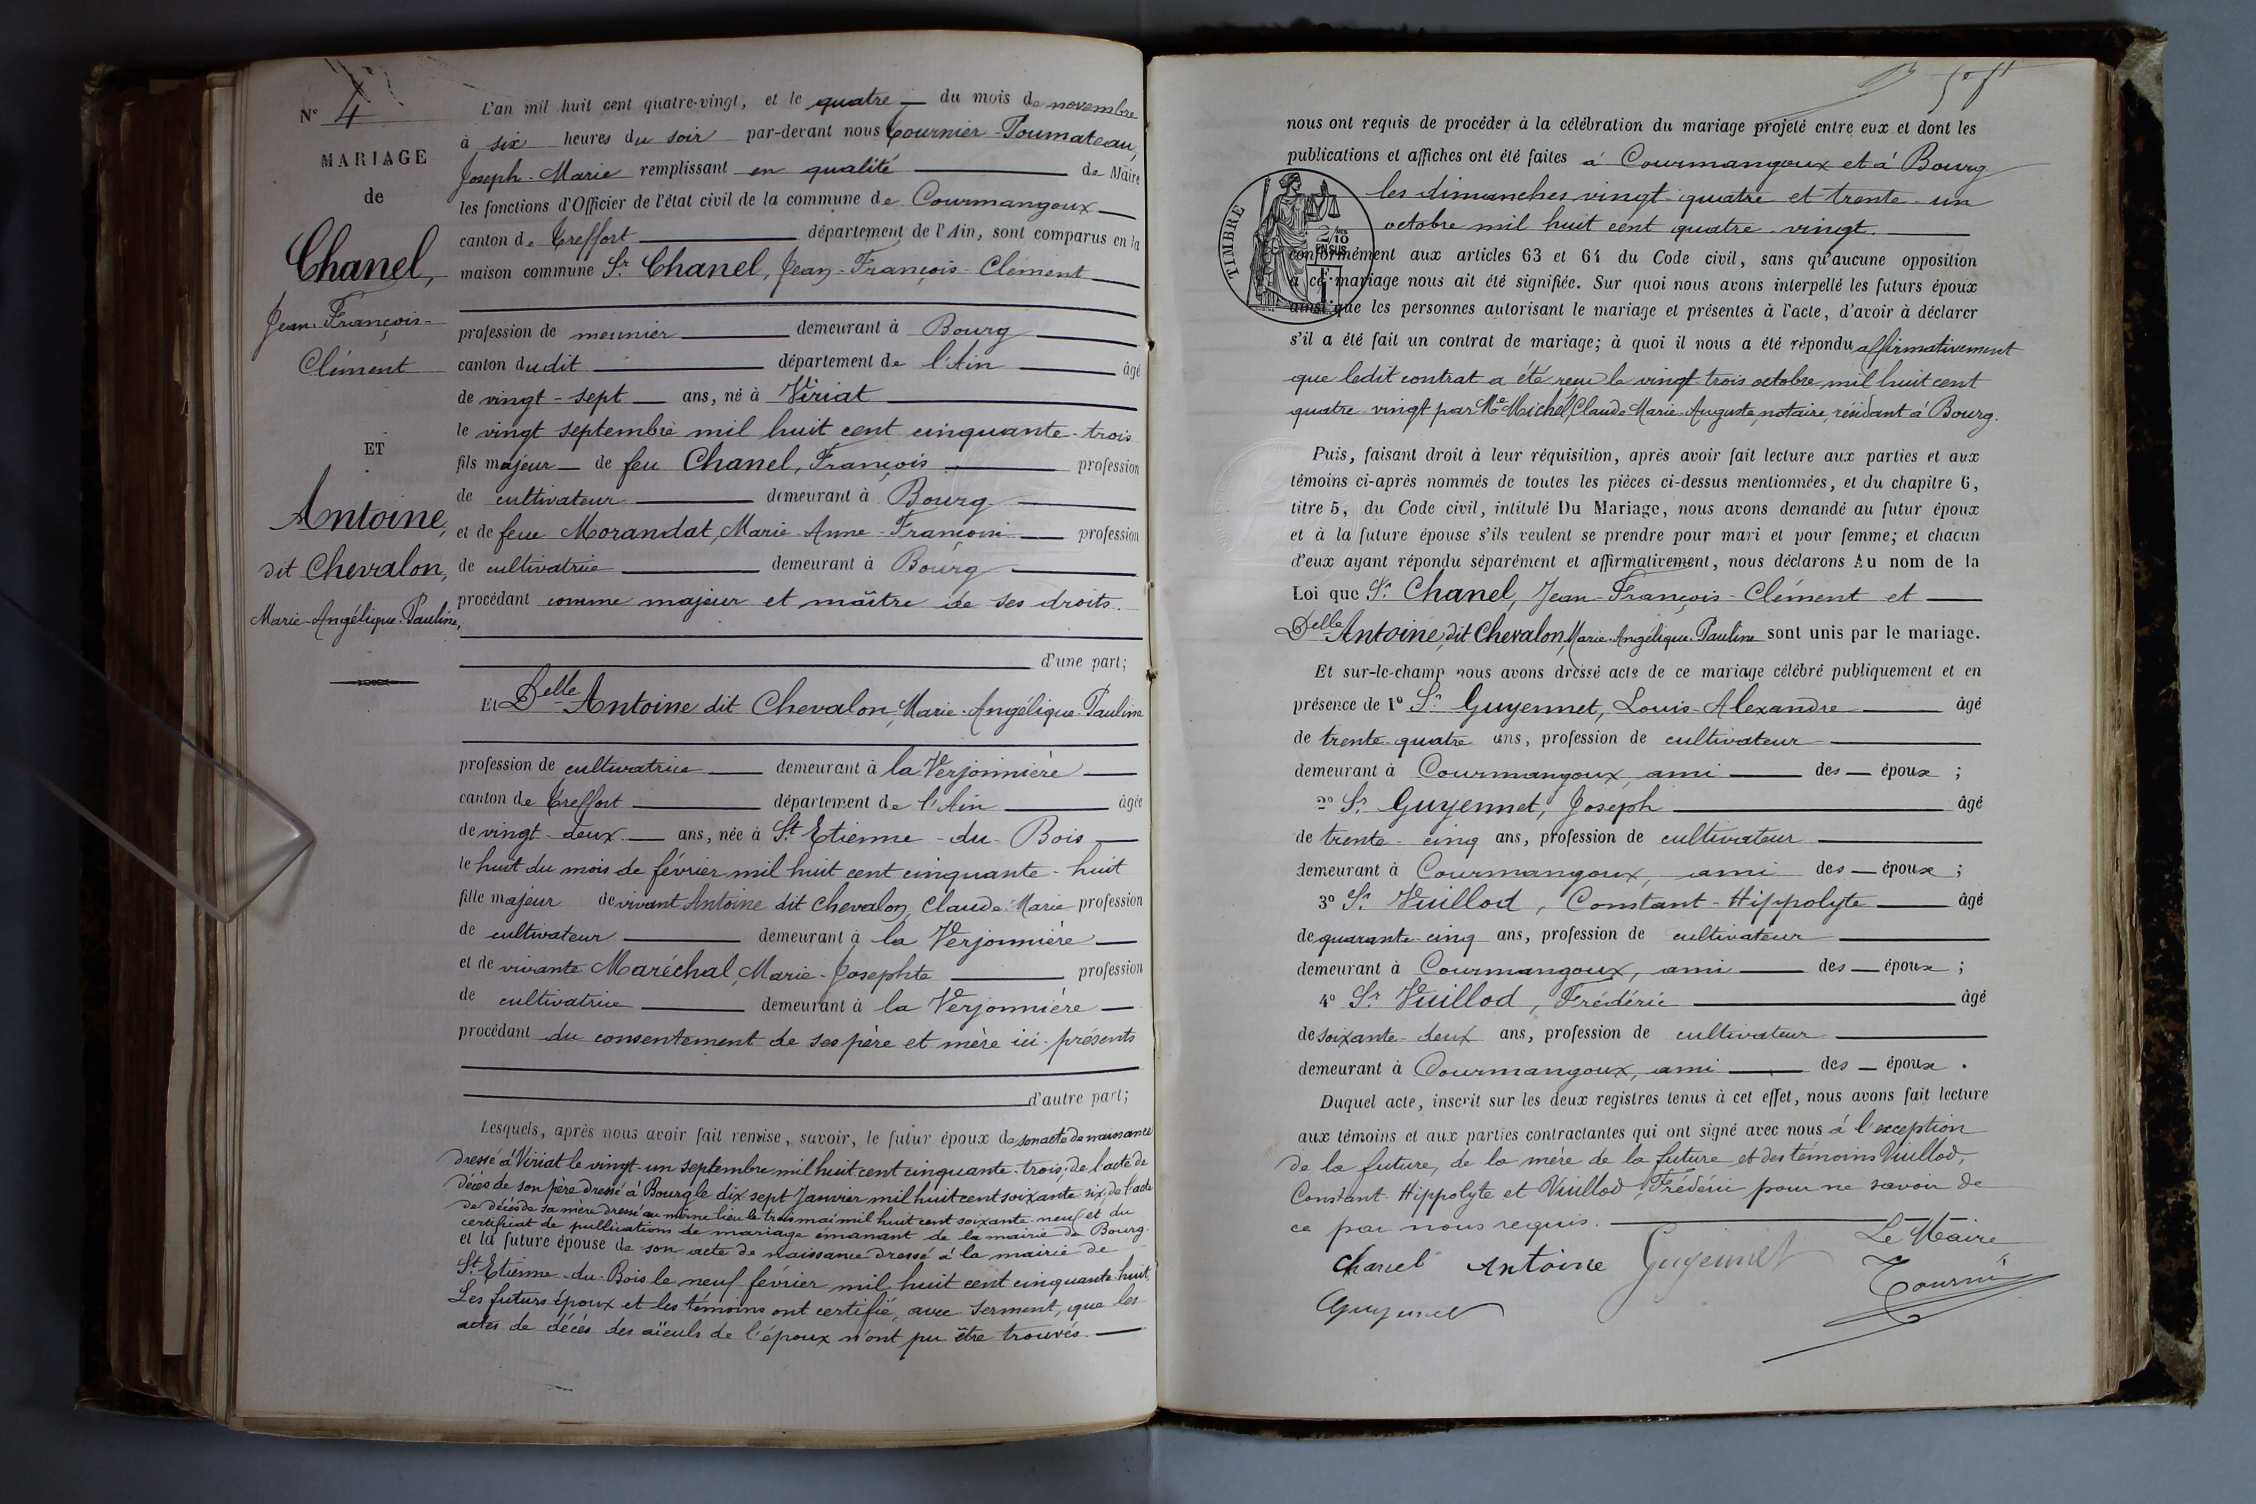 N° 4
MARIAGE
de
Chanel,
Jean-François-
Clément
ET
Antoine,
dit Chevalon,
Marie-Angélique-Pauline,
L'an mil huit cent quatre-vingt, et le quatre du mois de novembre
à six heures du soir par-devant nous Tournier-Poumateau,
Joseph-Marie remplissant en qualité de Maire
les fonctions d'Officier de l'état civil de la commune de Courmangoux
canton de Treffort département de l'Ain, sont comparus en la
maison commune Sr. Chanel, Jean-François-Clément
profession de meunier demeurant à Bourg
canton dudit département de l'Ain âgé
de vingt-sept ans, né à Viriat
le vingt septembre mil huit cent cinquante-trois
fils majeur de feu Chanel, François profession
de cultivateur demeurant à Bourg
et de feue Morandat, Marie-Anne-Françoise profession
de cultivatrice demeurant à Bourg
procédant comme majeur et maître de ses droits.
d'une part;
Et Delle Antoine dit Chevalon, Marie-Angélique-Pauline
profession de cultivatrice demeurant à la Verjonnière
canton de Treffort département de l'Ain âgée
de vingt-deux ans, née à St Etienne-du-Bois
le huit du mois de février mil huit cent cinquante-huit
fille majeur de vivant Antoine dit Chevalon, Claude-Marie profession
de cultivateur demeurant à la Verjonnière
et de vivante Maréchal, Marie-Josephte profession
de cultivatrice demeurant à la Verjonnière
procédant du consentement de ses père et mère ici présents
d'autre part;
Lesquels, après nous avoir fait remise, savoir, le futur époux de son acte de naissance
dressé à Viriat le vingt-un septembre mil huit cent cinquante-trois, de l'acte de
décès de son père dressé à Bourg le dix sept Janvier mil huit cent soixante-six, de l'acte
de décès de sa mère dressé au même lieu le trois mai mil huit cent soixante-neuf et du
certificat de publications de mariage émanant de la mairie de Bourg.
et la future épouse de son acte de naissance dressé à la mairie de
St Etienne-du-Bois le neuf février mil huit cent cinquante-huit.
Les futurs époux et les témoins ont certifié, avec serment, que les
actes de décès des aïeuls de l'époux n'ont pu être trouvés.
nous ont requis de procéder à la célébration du mariage projeté entre eux et dont les
publications et affiches ont été faites à Courmangoux et à Bourg
les dimanches vingt-quatre et trente-un
octobre mil huit cent quatre-vingt.
TIMBRE
2/10
EN SUS
conformément aux articles 63 et 64 du Code civil, sans qu'aucune opposition
à ce mariage nous ait été signifiée. Sur quoi nous avons interpellé les futurs époux
ainsi que les personnes autorisant le mariage et présentes à l'acte, d'avoir à déclarer
s'il a été fait un contrat de mariage; à quoi il nous a été répondu affirmativement
que ledit contrat a été reçu le vingt trois octobre mil huit cent
quatre-vingt par Me Michel, Claude-Marie-Auguste, notaire, résidant à Bourg.
Puis, faisant droit à leur réquisition, après avoir fait lecture aux parties et aux
témoins ci-après nommés de toutes les pièces ci-dessus mentionnées, et du chapitre 6,
titre 5, du Code civil, intitulé Du Mariage, nous avons demandé au futur époux
et à la future épouse s'ils veulent se prendre pour mari et pour femme; et chacun
d'eux ayant répondu séparément et affirmativement, nous déclarons Au nom de la
Loi que Sr. Chanel, Jean-François-Clément et
Delle Antoine, dit Chevalon, Marie-Angélique-Pauline sont unis par le mariage.
Et sur-le-champ nous avons dressé acte de ce mariage célébré publiquement et en
présence de 1° Sr. Guyennet, Louis-Alexandre âgé
de trente-quatre ans, profession de cultivateur
demeurant à Courmangoux, ami des époux ;
2° Sr. Guyennet, Joseph âgé
de trente-cinq ans, profession de cultivateur
demeurant à Courmangoux, ami des époux ;
3° Sr. Vuillod, Constant-Hippolyte âgé
de quarante-cinq ans, profession de cultivateur
demeurant à Courmangoux, ami des époux ;
4° Sr Vuillod, Frédéric âgé
de soixante-deux ans, profession de cultivateur
demeurant à Courmangoux, ami des époux.
Duquel acte, inscrit sur les deux registres tenus à cet effet, nous avons fait lecture
aux témoins et aux parties contractantes qui ont signé avec nous à l'exception
de la future, de la mère de la future et des témoins Vuillod,
Constant-Hippolyte et Vuillod, Frédéric pour ne savoir de
ce par nous requis.
Le Maire
Chanel Antoine Guyennet
Tournier
Guyennet